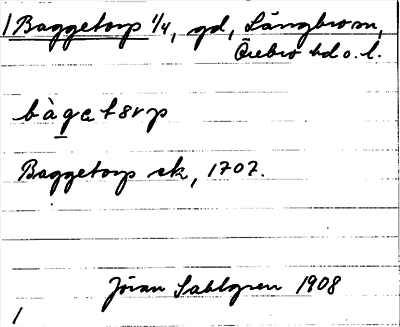 1 Baggetorp 1/4, gd, Längbro sn,
Örebro hd o. l.
bàgatårp
Baggetorp sk, 1707.
Jöran Sahlgren 1908
1